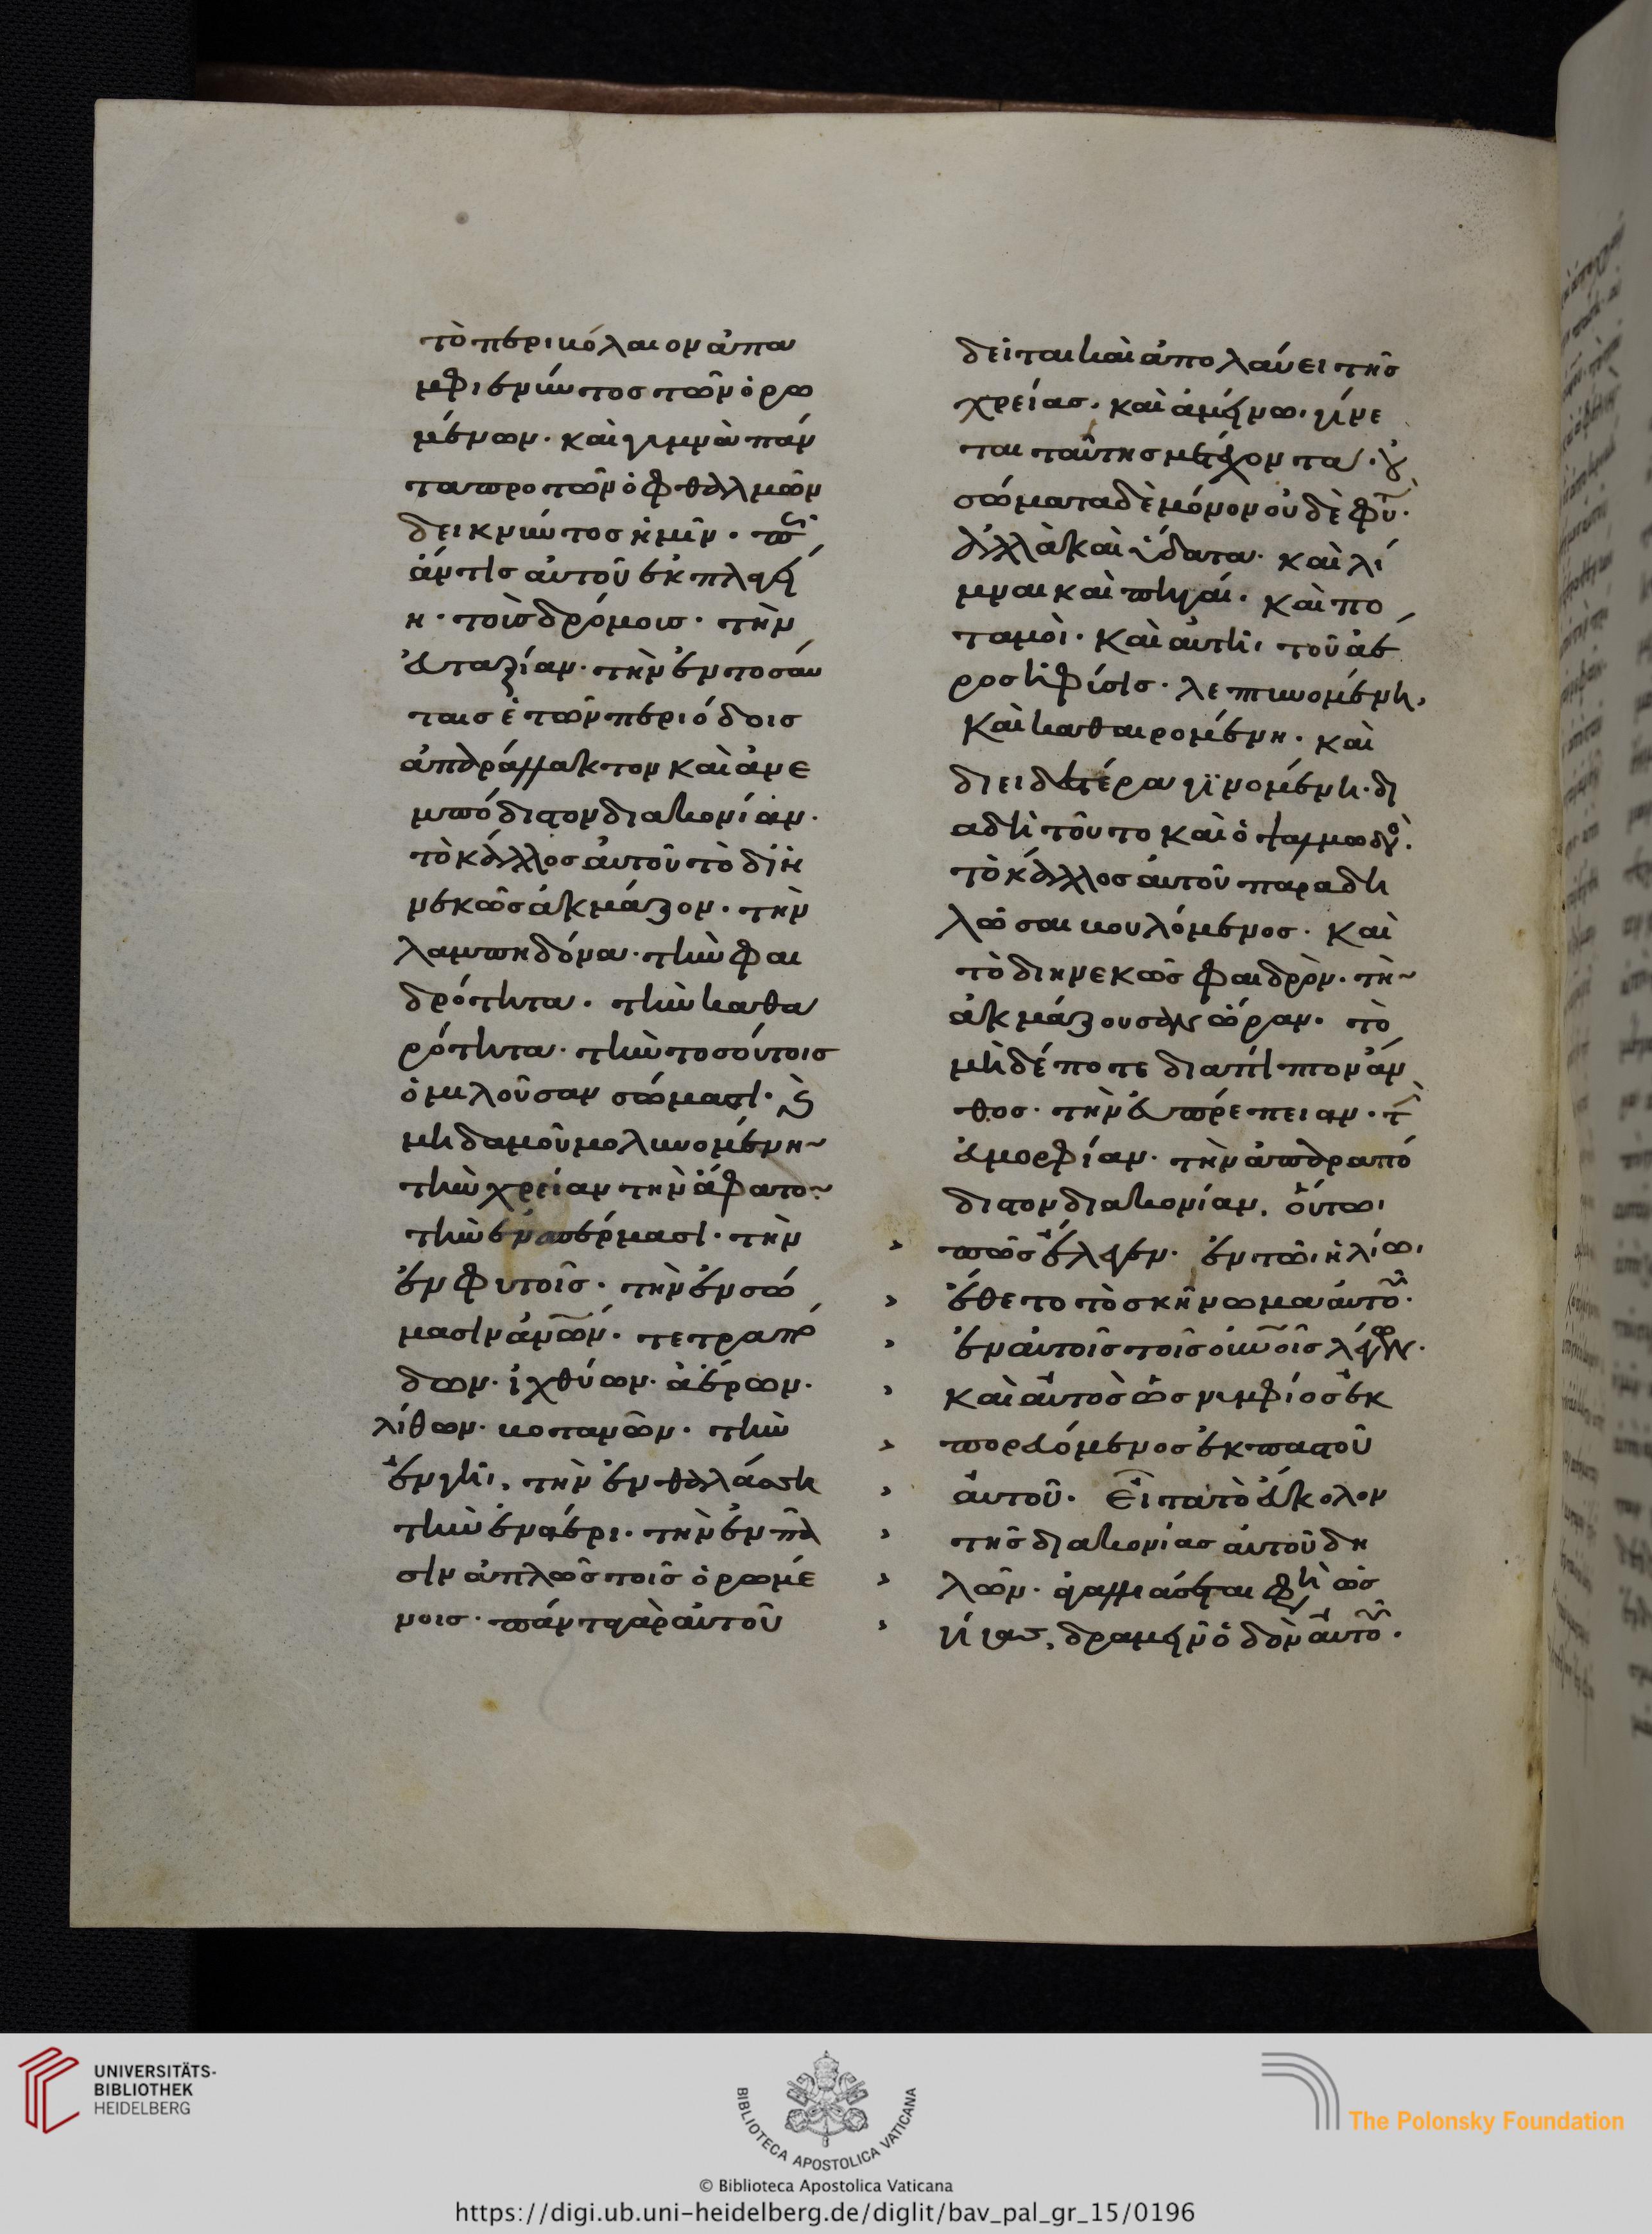 τὸ περιβόλαιον ἀπα
μφιεννύντος τῶν ὁρω
μένων. καὶ γυμνὰ πάν
τα προ τῶν ὀφθαλμῶν
δεικνύντος ἡμῖν.
ἅντις αὐτοῦ ἐκπλαγεί
η. τοὺς δρόμους. τὴν
εὐταξίαν. τὴν ἐν τοσαύ
ταις ἐτῶν περιόδοις
ἀπαράλλακτον καὶ ἀνε
μπόδιστον διακονίαν.
τὸ κάλλος αὐτοῦ τὸ διη
νεκῶς ἀκμάζον. τὴν
λαμπηδόνα. τὴν φαι
δρότητα. τὴν καθα
ρότητα. τὴν τοσούτοις
ὁμιλοῦσαν σώμασι. καὶ
μηδαμοῦ μολυνομένην
τὴν χρείαν τὴν ἄφατον
τὴν ἐν σπέρμασι. τὴν
ἐν φυτοῖς. τὴν ἐν σώ
μασιν ἀνων. τετραπό
δων. ἰχθύων. ἀέρων.
λίθων. βοτανῶν. τὴν
ἐν γῆι. τὴν ἐν θαλάσση
τὴν ἐν ἀέρι. τὴν ἐν πᾶ
σιν ἁπλῶς τοῖς ὁρωμέ
νοις. πάντα γὰρ αὐτοῦ
δεῖται καὶ ἀπολαύει τῆς
χρείας. καὶ ἀμείνω. γίνε
ται ταύτης μετέχοντα. οὐ
σώματα δὲ μόνον οὐδὲ φυτ.
ἀλλὰ καὶ ὕδατα. καὶ λί
μναι καὶ πηγαί. καὶ πο
ταμοὶ. καὶ αὐτὴ τοῦ ἀέ
ρος ἡ φύσις. λεπτυνομένη.
καὶ καθαιρομένη. καὶ
διειδεστέρα γινομένη. δι
αδὴ τοῦτο καὶ ὁ ψαλμωδὸ.
τὸ κάλλος αὐτοῦ παραδη
λῶσαι βουλόμενος. καὶ
τὸ διηνεκῶς φαιδρὸν. τὴν
ἀκμάζουσαν ὥραν. τὸ
μηδέποτε διαπίπτον ἄν
θος. τὴν εὐπρέπειαν. τὴν
εὐμορφίαν. τὴν ἀπαραπό
διστον διακονίαν. οὕτω
πως ἔλεγεν. ἐν τῶι ἡλίωι
ἔθετο τὸ σκήνωμα αὐτοῦ.
ἐν αὐτοῖς τοῖς οὐνοῖς λέγων.
καὶ αὐτὸς ὡς νυμφίος ἐκ
πορευόμενος ἐκ παστοῦ
αὐτοῦ. Εἶτα τὸ εὔκολον
τῆς διακονίας αὐτοῦ δη
λῶν. ἀγαλλιάσεται φησὶν ὡς
γίγας. δραμεῖν ὁδὸν αὐτοῦ.
UNIVERSITÄTS-
BIBLIOTHEK
HEIDELBERG
BIBLIOTECA APOSTOLICA VATICANA
The Polonsky Foundation
© Biblioteca Apostolica Vaticana
https://digi.ub.uni-heidelberg.de/diglit/bav_pal_gr_15/0196